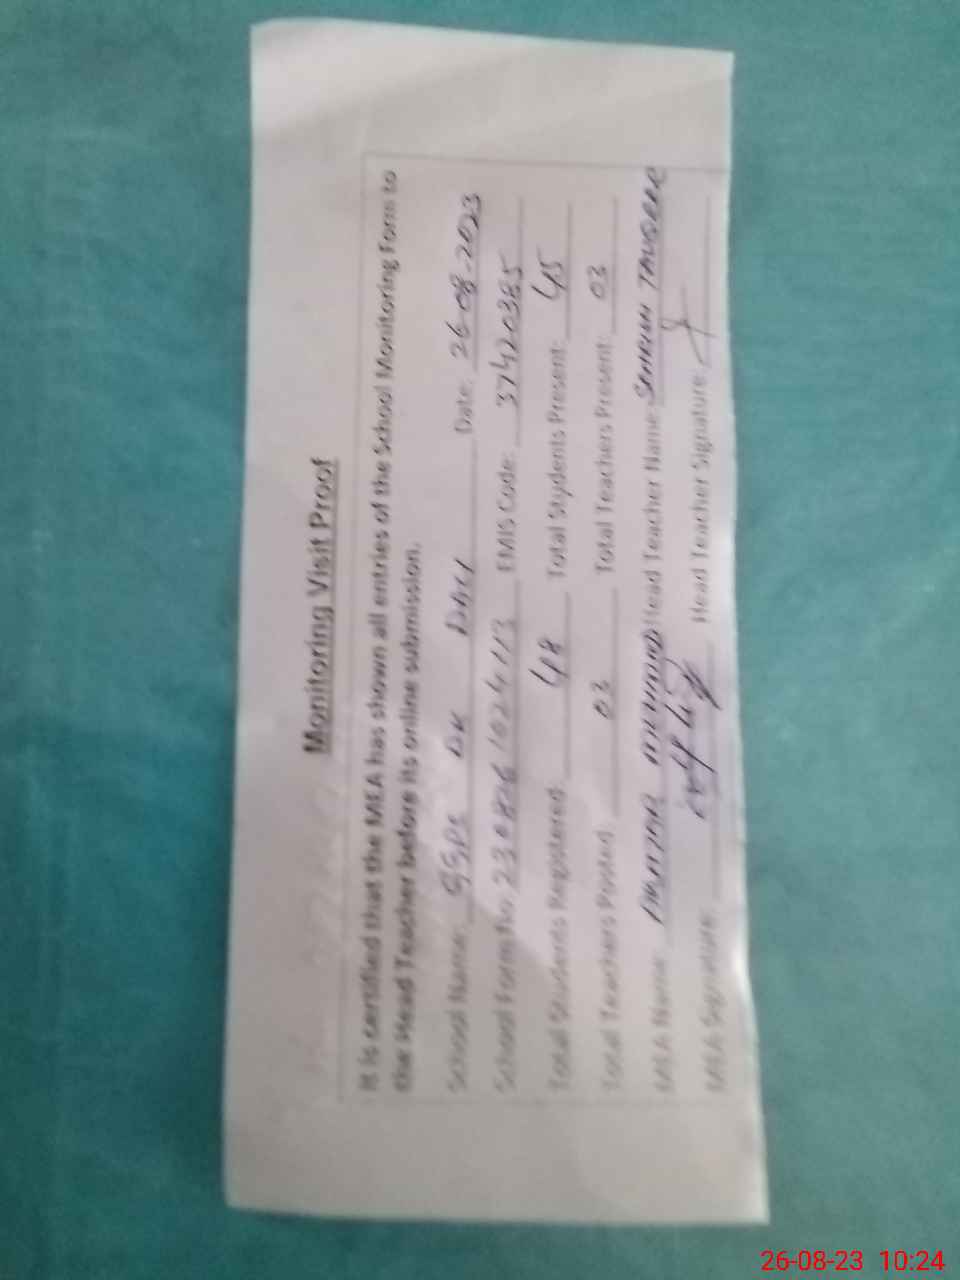 Monitoring Visit Proof
It is certified that the MEA has shown all entries of the School Monitoring Form to
the Head Teacher before its online submission.
School Name: GGPS DK Date: 26-08-2023
School Form No: EMIS Code: 37420385
Total Students Registered: 48 Total Students Present: 45
Total Teachers Posted: 03 Total Teachers Present: 03
MEA Name: Head Teacher Name:
MEA Signature: Head Teacher Signature:
26-08-23 10:24